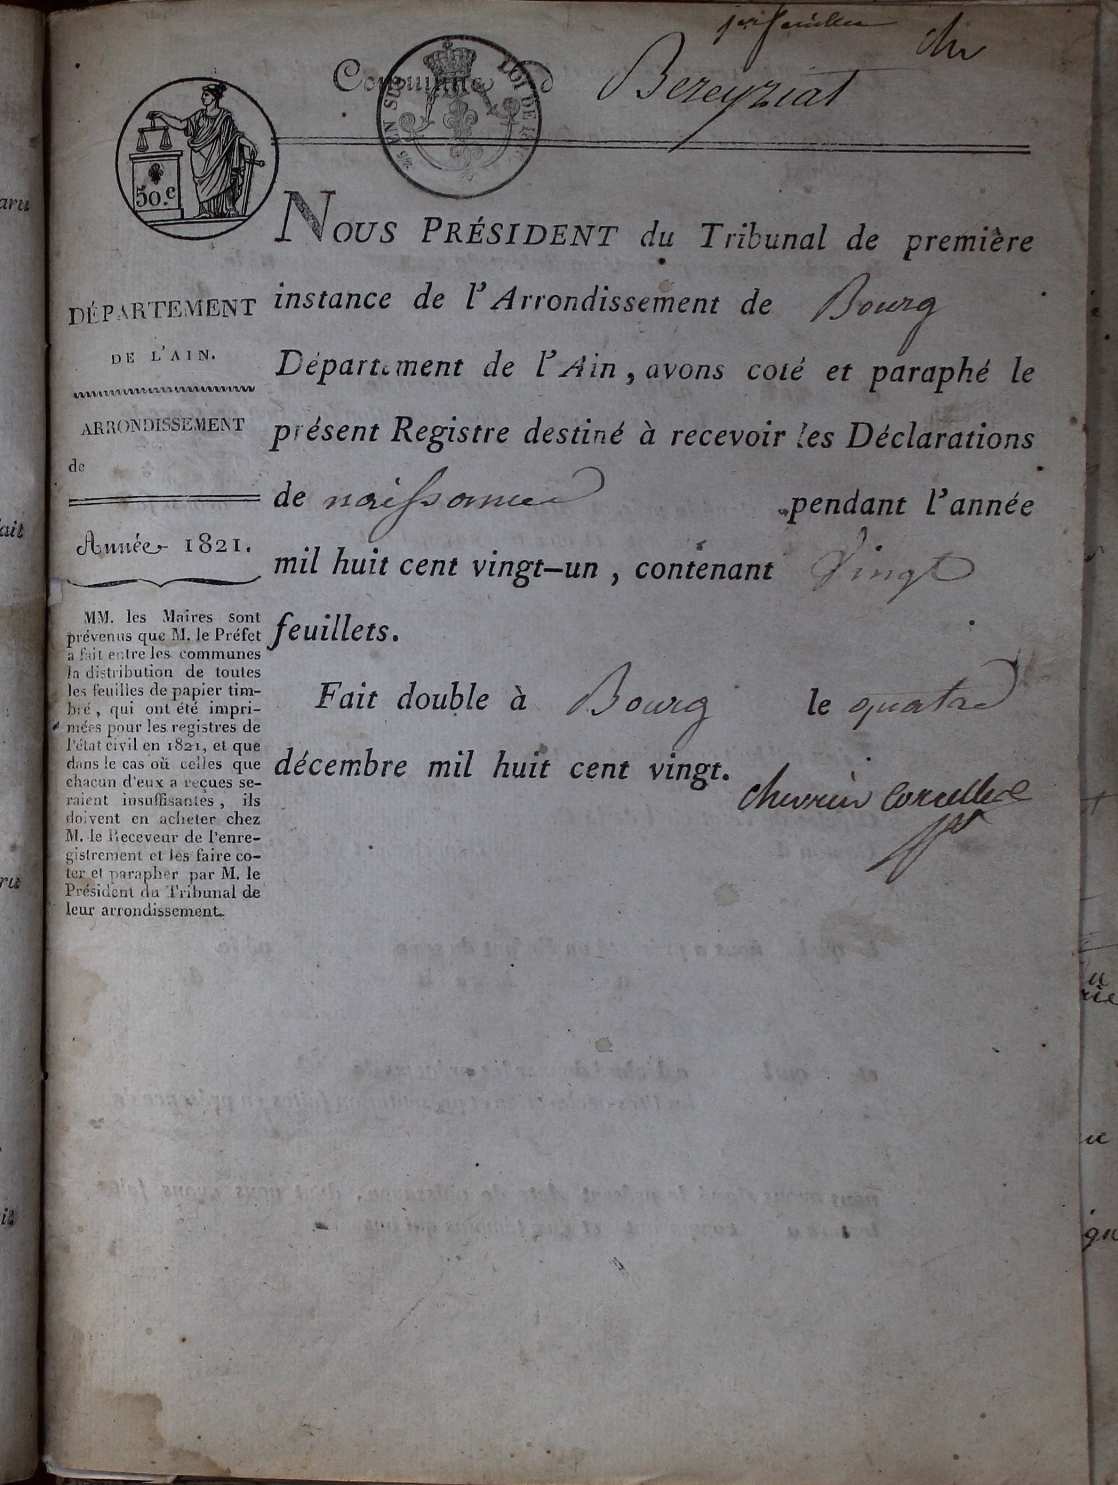 Commune d Bereyziat
50.c
LOI DE
NOUS PRÉSIDENT du Tribunal de première
instance de l'Arrondissement de Bourg
Département de l'Ain, avons coté et paraphé le
présent Registre destiné à recevoir les Déclarations
de naissance pendant l'année
mil huit cent vingt-un, contenant Vingt
feuillets.
Fait double à Bourg le quatre
décembre mil huit cent vingt.
DÉPARTEMENT
DE L'AIN.
ARRONDISSEMENT
de
Année 1821.
MM. les Maires sont
prévenus que M. le Préfet
a fait entre les communes
la distribution de toutes
les feuilles de papier tim-
bré, qui ont été impri-
mées pour les registres de
l'état civil en 1821, et que
dans le cas où celles que
chacun d'eux a reçues se-
raient insuffisantes, ils
doivent en acheter chez
M. le Receveur de l'enre-
gistrement et les faire co-
ter et parapher par M. le
Président du Tribunal de
leur arrondissement.